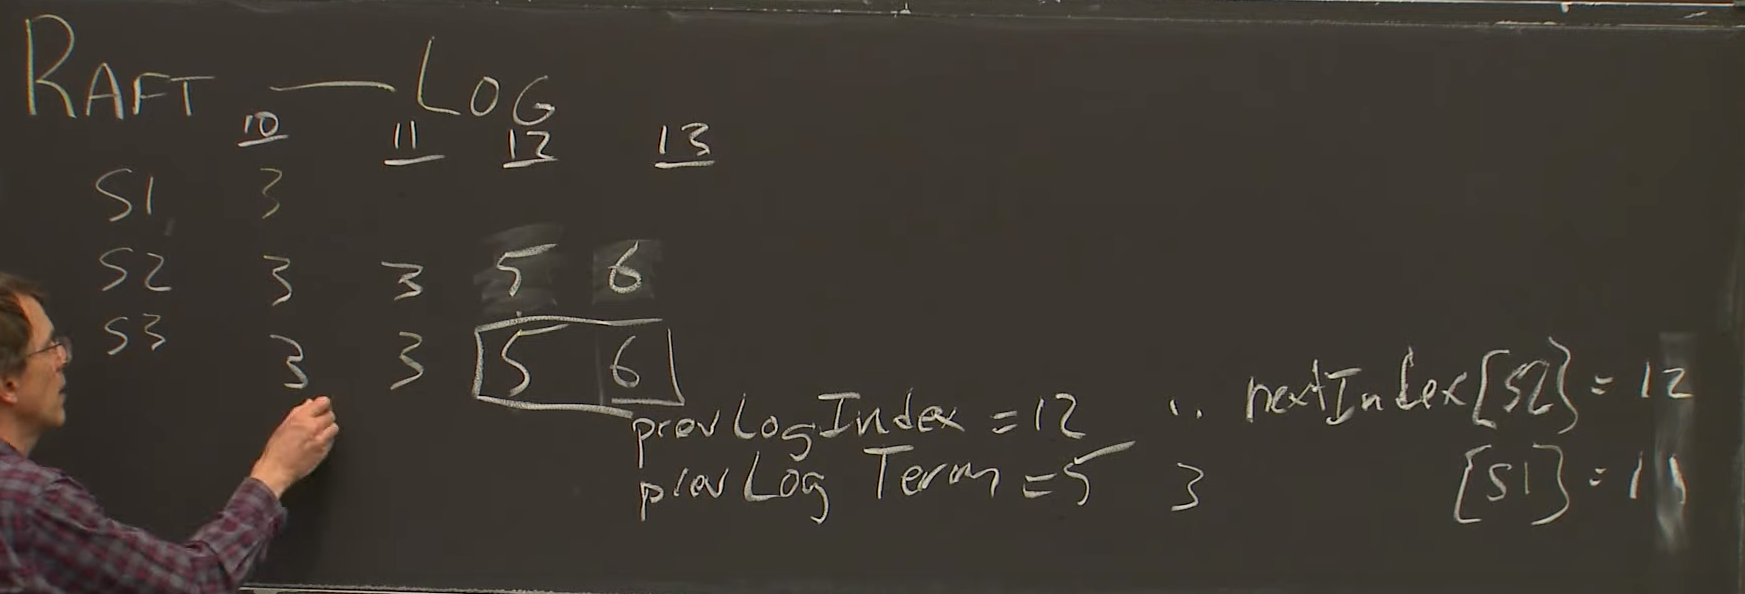 RAFT — LOG
10 11 12 13
S1 3
S2 3 3 5 6
S3 3 3 5 6
prevLogIndex = 12 11 nextIndex[S2] = 12
prevLogTerm = 5 3 [S1] = 11